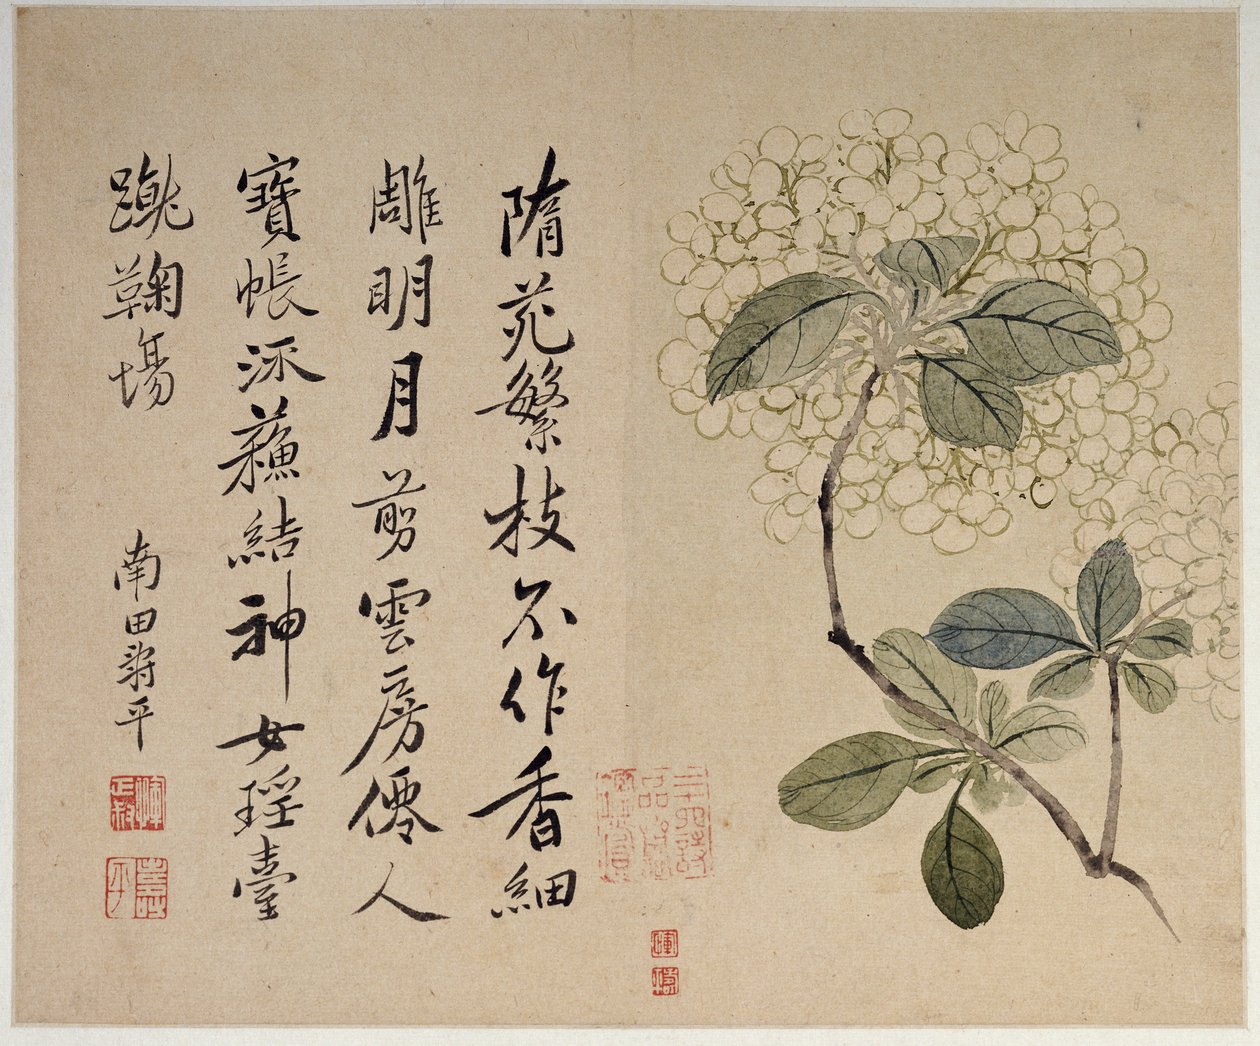 隋苑繁枝不作香細
雕明月剪雲房僊人
寶帳流蘇結神女瑶臺
蹴鞠場
南田壽平
惲
正叔
壽
平